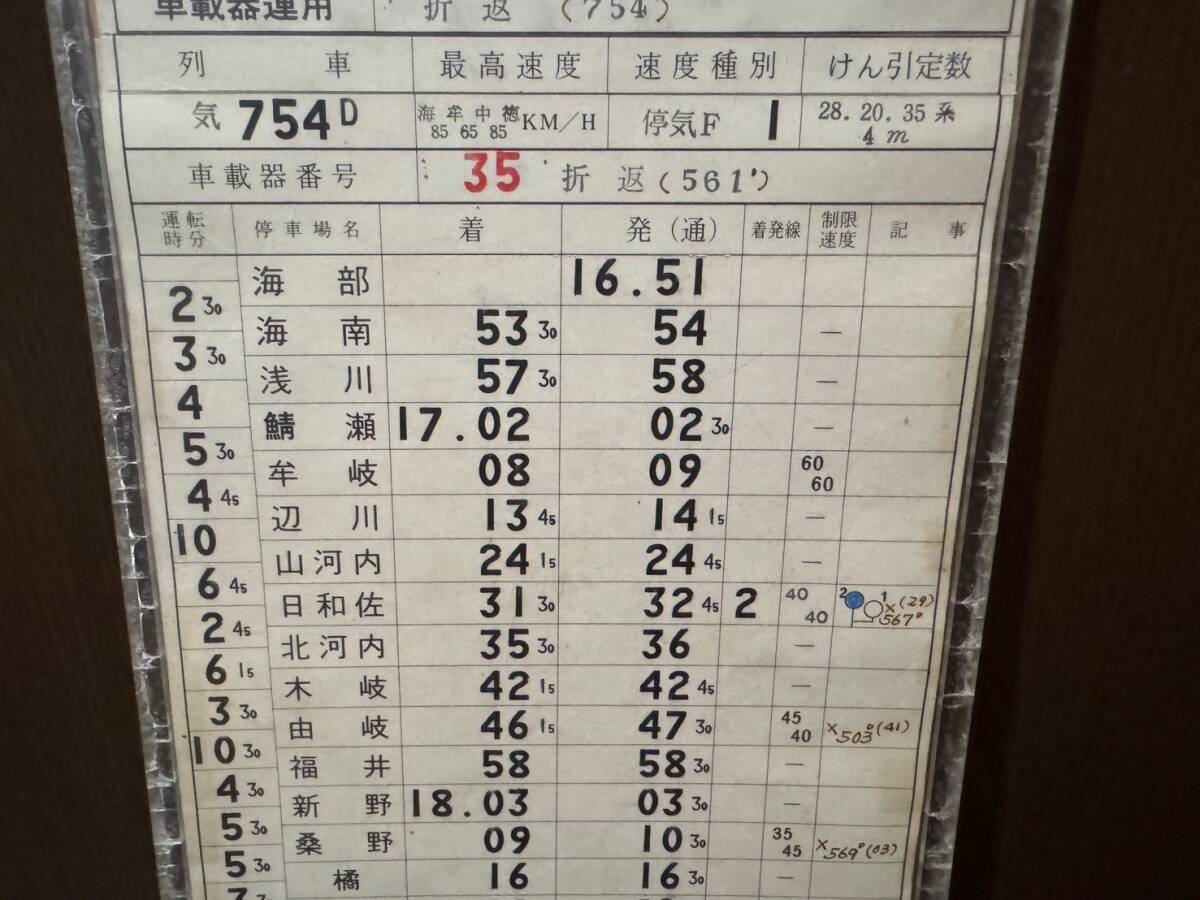 車載器運用 折返(754)
列車 最高速度 速度種別 けん引定数
気 754D 海 牟 中 徳 85 65 85 KM/H 停気F 1 28.20.35系 4m
車載器番号 35 折返(561')
運転時分 停車場名 着 発(通) 着発線 制限速度 記事
海部 16.51
2 30
海南 53 30 54 —
3 30
浅川 57 30 58 —
4
鯖瀬 17.02 02 30 —
5 30
牟岐 08 09 60 60
4 45
辺川 13 45 14 15 —
10
山河内 24 15 24 45 —
6 45
日和佐 31 30 32 45 2 40 40 2 1 ×(29) 567D
2 45
北河内 35 30 36 —
6 15
木岐 42 15 42 45 —
3 30
由岐 46 15 47 30 45 40 ×503D(41)
10 30
福井 58 58 30 —
4 30
新野 18.03 03 30 —
5 30
桑野 09 10 30 35 45 ×569D(03)
5 30
橘 16 16 30 —